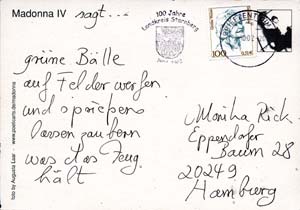 Madonna IV sagt...
grüne Bälle
auf Felder werfen
und spriessen
lassen zaubern
was das Zeug
hält
100 Jahre
Landkreis Starnberg
100
Monika Rick
Eppendorfer
Baum 28
20249
Hamburg
www.postcards.de/madonna
foto by Augusta Laar